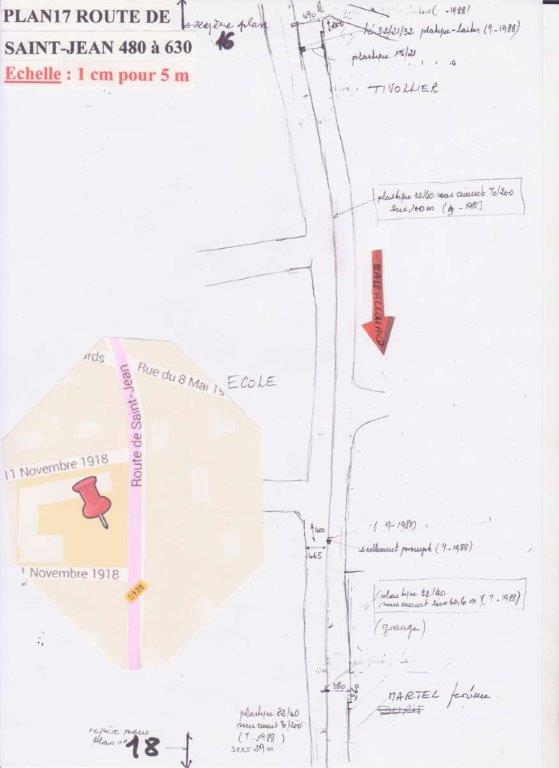 PLAN17 ROUTE DE
SAINT-JEAN 480 à 630
Echelle : 1 cm pour 5 m
plan
16
490
(-1988)
32/21/32 plastique-laiton (9-1988)
plastique 15/21
TIVOLLIER
plastique 32/40 sous ciment 70/200
sur 100 m
ards
Rue du 8 Mai 19
Route de Saint-Jean
ECOLE
11 Novembre 1918
1 Novembre 1918
(9-1988)
400
465
scellement prompt (9-1988)
plastique 32/40
sous ciment sur 30,6 m (9-1988)
(grange)
380
360
MARTEL Jérôme
plastique 32/40
sous ciment 70/200
(9-1988)
sur 29 m
repère
plan n° 18